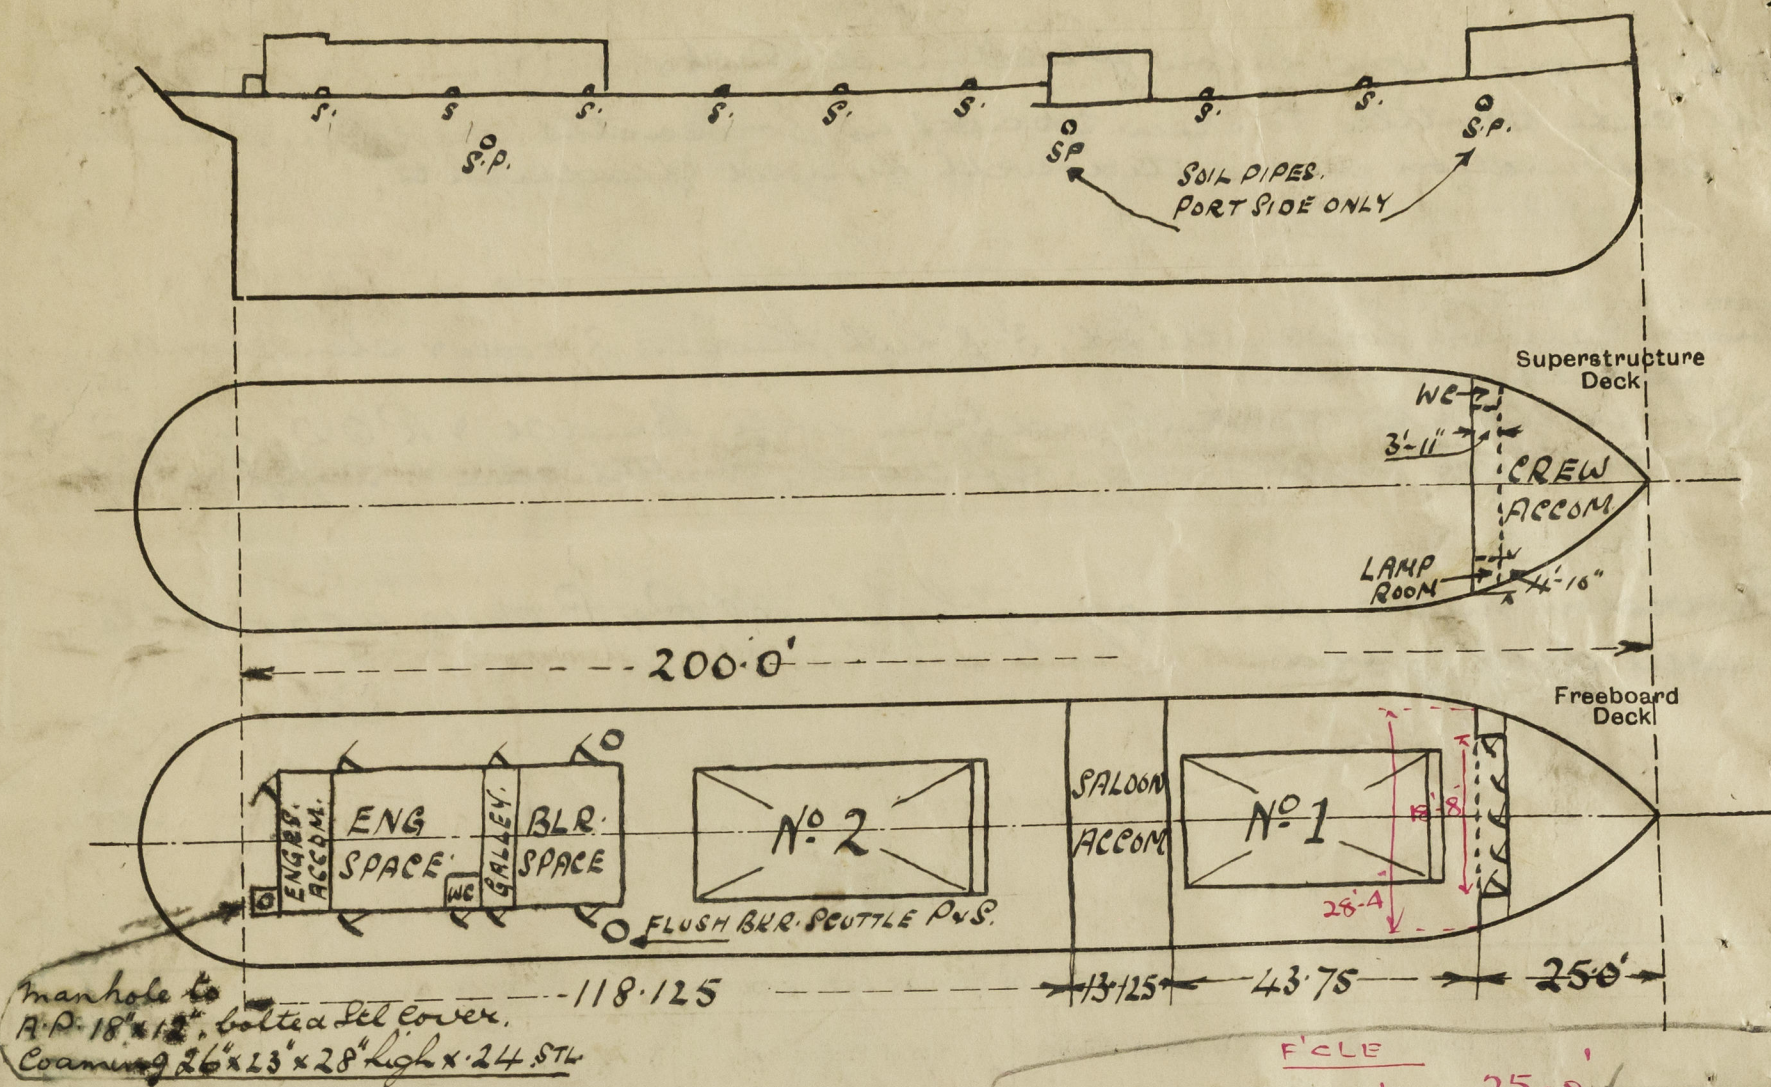 S. S S. S. S. S. S. S.
S.P.
SP
S.P.
SOIL PIPES.
PORT SIDE ONLY
Superstructure
Deck
WC
3'-11"
CREW
ACCOM
LAMP
ROOM
4'-10"
200·0'
Freeboard
Deck
ENGRS.
ACCOM.
ENG
SPACE
WC
GALLEY.
BLR.
SPACE
No 2
SALOON
ACCOM
No 1
18'-8"
28'-4"
FLUSH BKR. SCUTTLE P & S.
118·125
13·125
43·75
25·0'
Manhole to
A.P. 18" x 12", bolted Stl Cover.
Coaming 26" x 23" x 28" high x ·24 STL
F'CLE